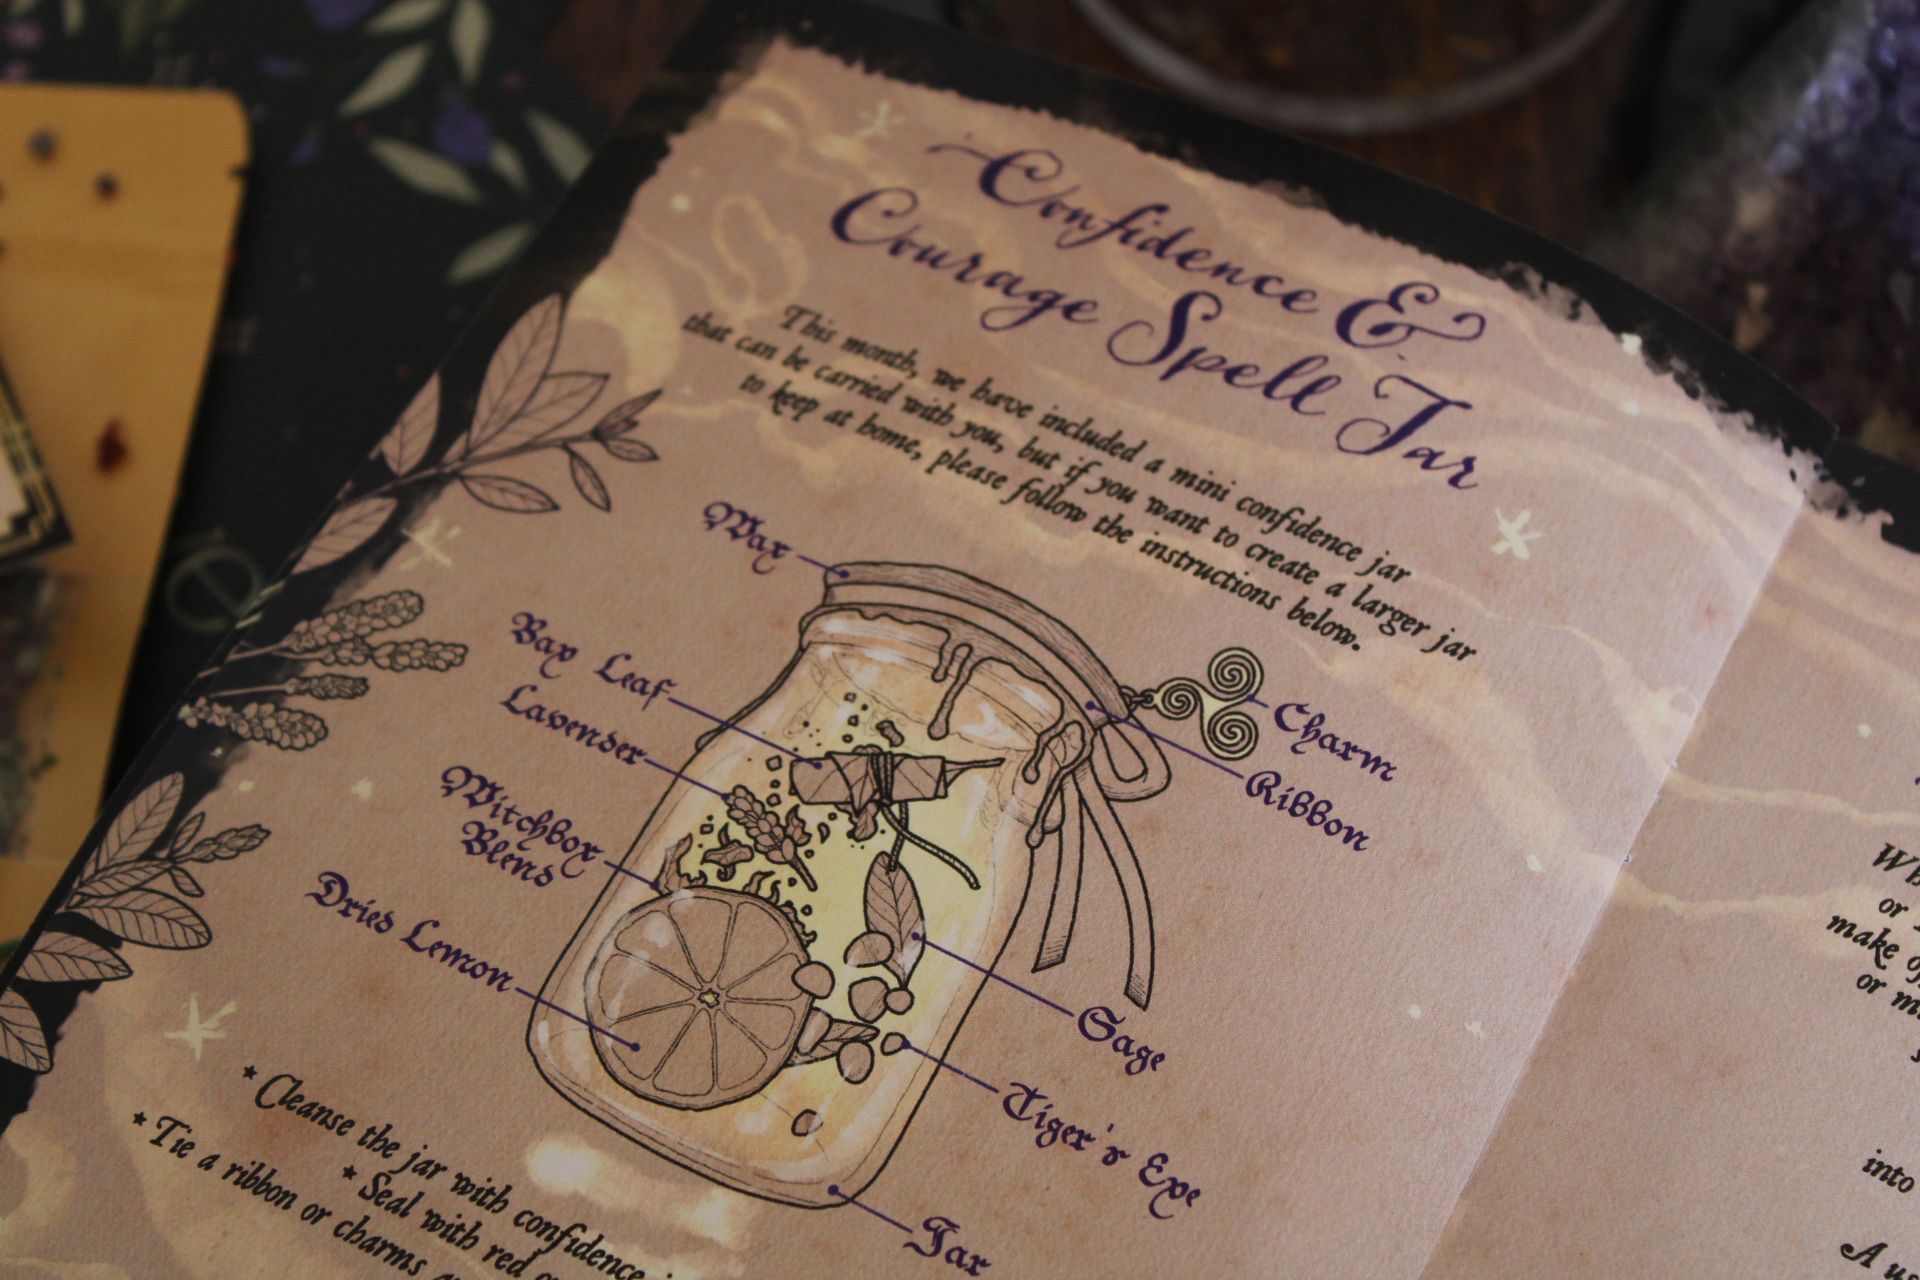 Confidence &
Courage Spell Jar
This month, we have included a mini confidence jar
that can be carried with you, but if you want to create a larger jar
to keep at home, please follow the instructions below.
Wax
Bay Leaf
Lavender
Witchbox
Blend
Dried Lemon
Charm
Ribbon
Sage
Tiger's Eye
Jar
*Cleanse the jar with confidence
*Seal with red
*Tie a ribbon or charms
or
make
or
into
A